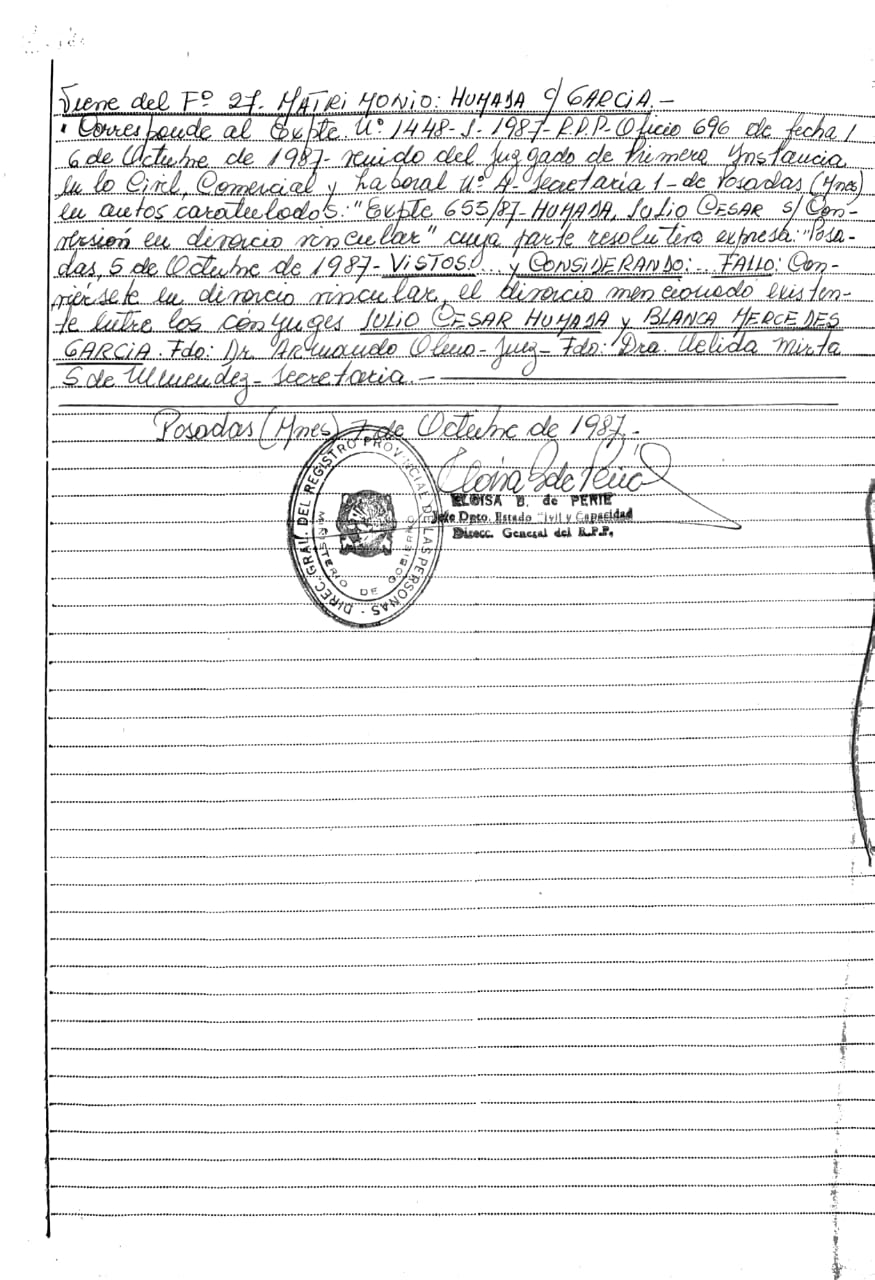 Viene del Fº 27. MATRIMONIO: HUMADA c/ GARCIA.-
" Corresponde al Expte. Nº 1448-J-1987-R.P.P-Oficio 696 de fecha /
6 de Octubre de 1987- venido del Juzgado de Primera Instancia
en lo Civil, Comercial y Laboral Nº 4-Secretaria 1-de Posadas (Mnes)
en autos caratulados: "Expte 655/87-HUMADA, JULIO CESAR S/ Con-
versión en divorcio vincular" cuya parte resolutiva expresa: "Posa-
das, 5 de Octubre de 1987- VISTOS:... y CONSIDERANDO:... FALLO: Con-
viértese en divorcio vincular, el divorcio mencionado existen-
te entre los cónyuges JULIO CESAR HUMADA y BLANCA MERCEDES
GARCIA. Fdo: Dr. Armando Olmo-Juez- Fdo: Dra. Nélida Mirta
S de Menendez-Secretaria.-
Posadas (Mnes) 7 de Octubre de 1987.-
DIREC. GRAL. DEL REGISTRO PROVINCIAL DE LAS PERSONAS -
MINISTERIO DE GOBIERNO
Eloisa B de Perié
ELOISA B. de PERIE
Jefe Dpto. Estado Civil y Capacidad
Direcc. General del R.P.P.